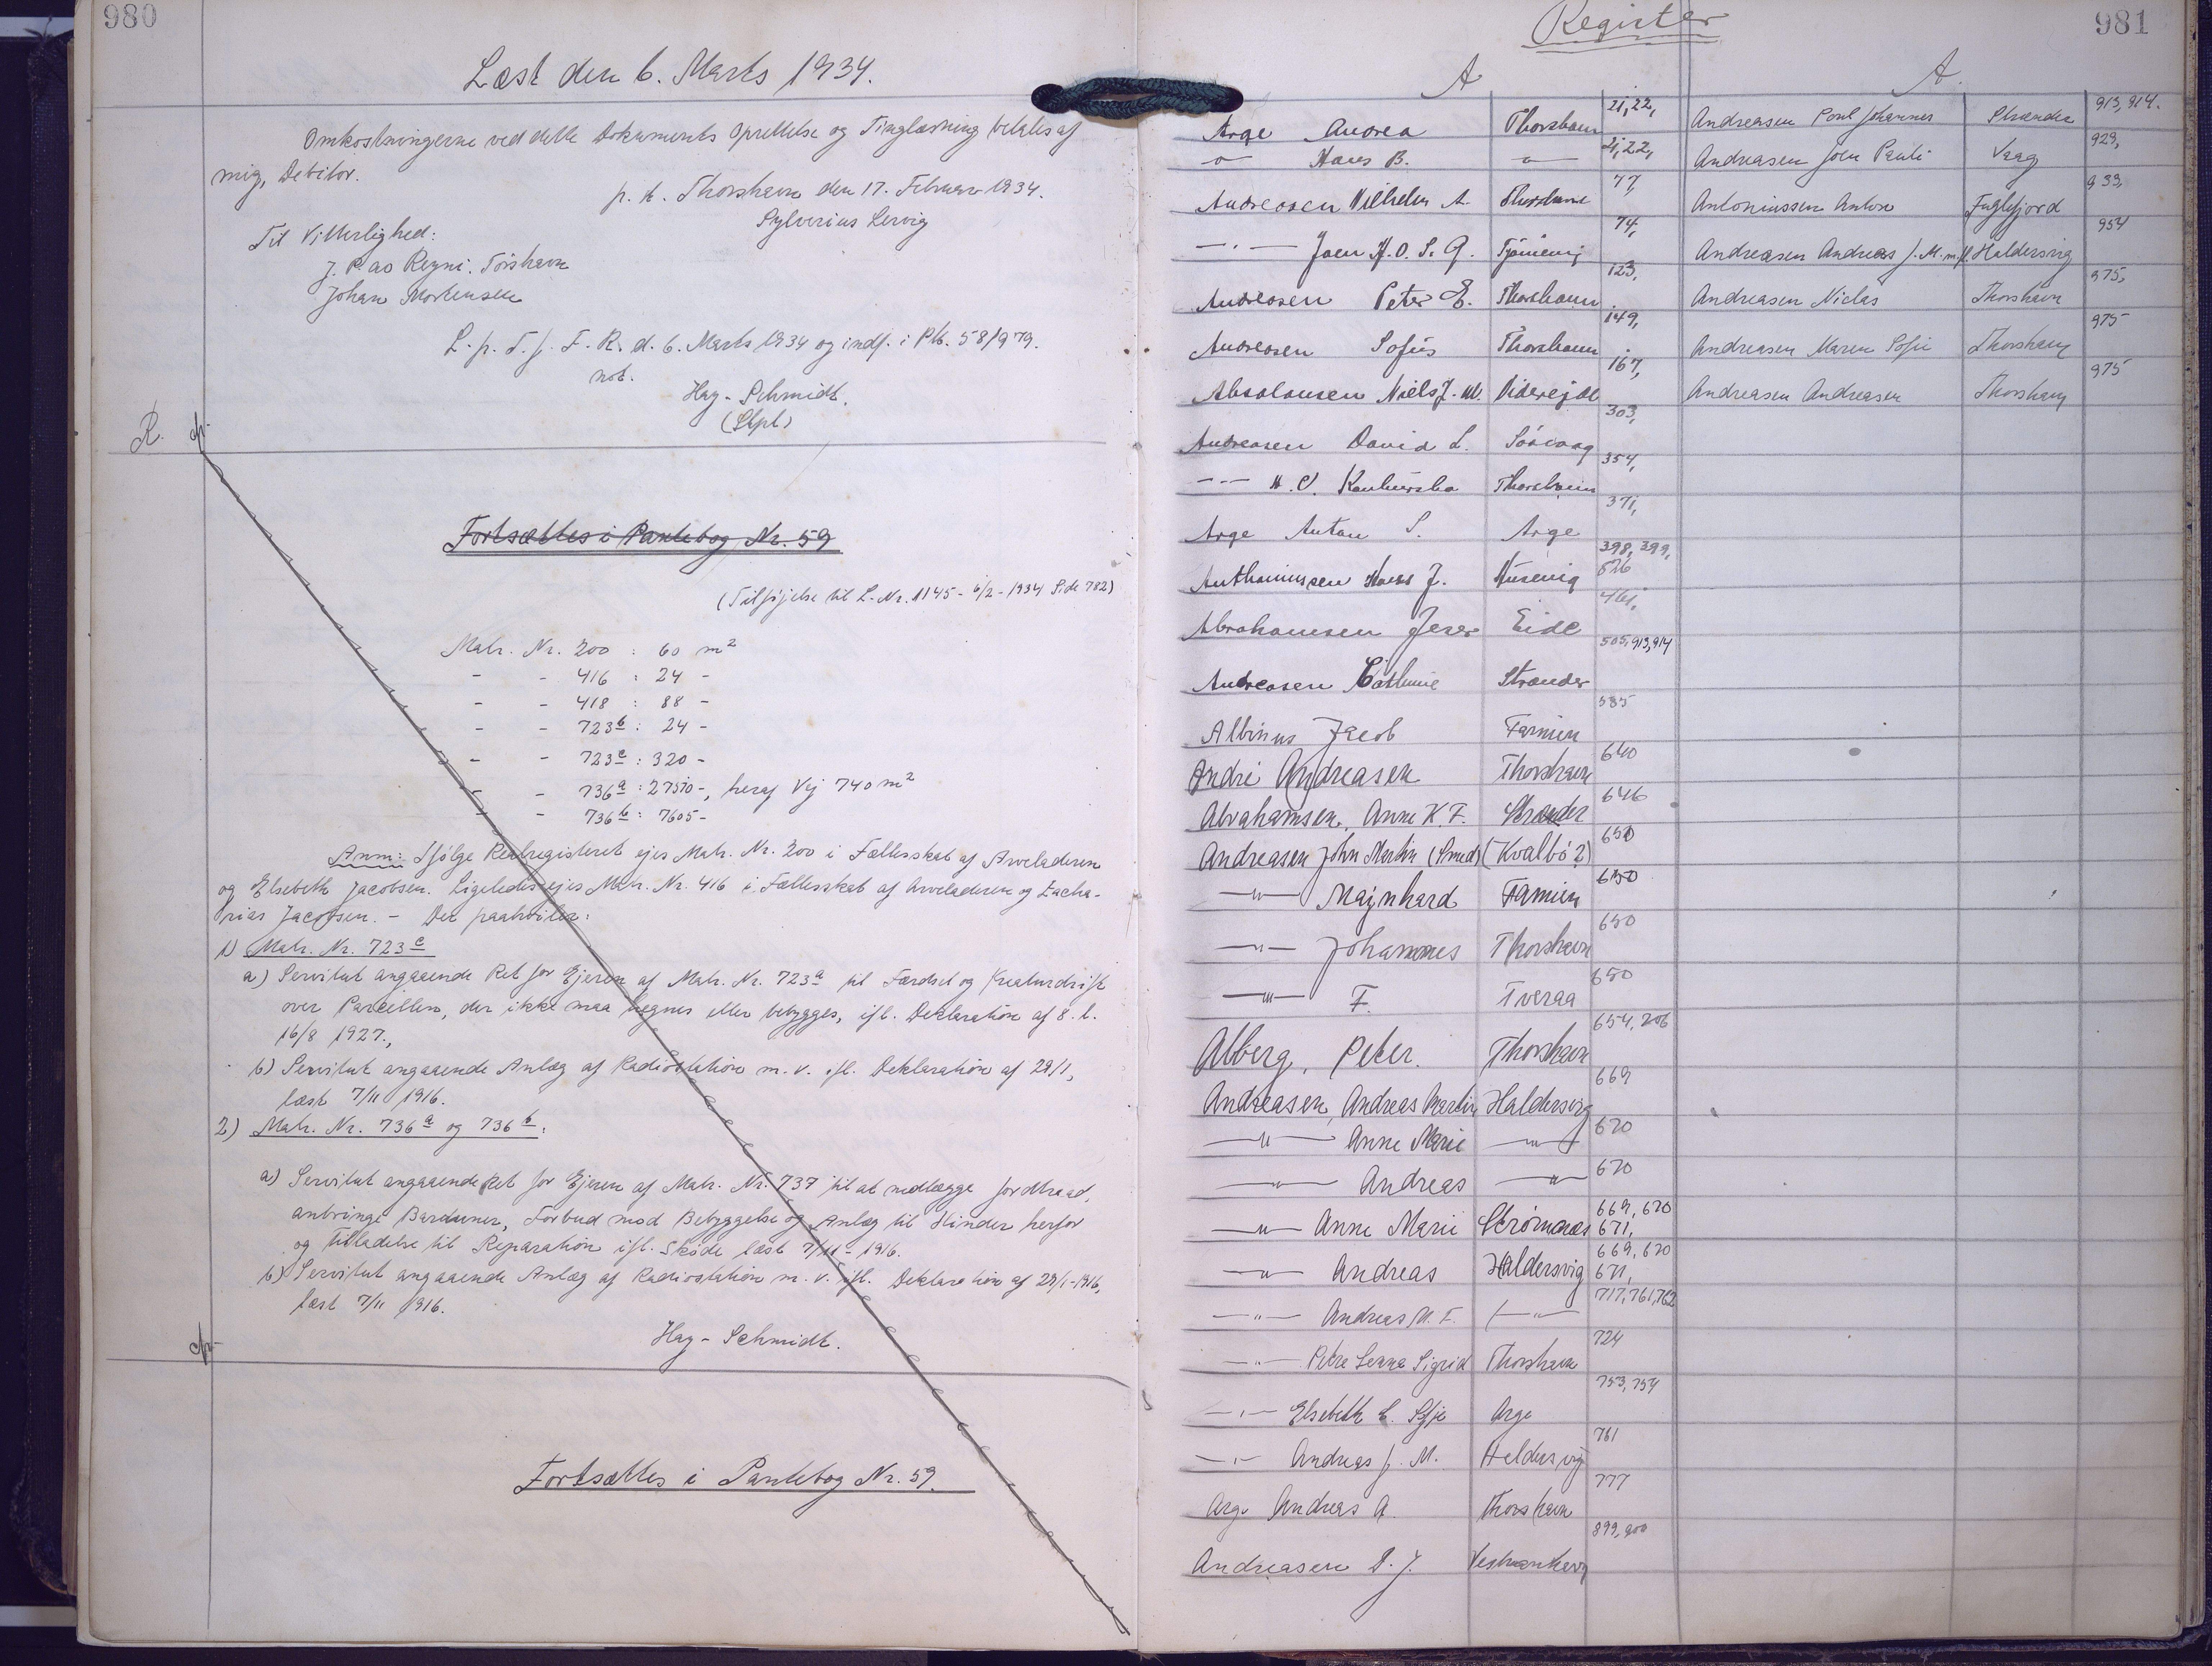 980
Læst den 6. Marts 1934.
Omkostningerne ved dette Dokuments Oprettelse og Tinglæsning betales af
mig, Debitor.
p. t. Thorshavn den 17. Februar 1934.
Sylverius Lervig
Til Vitterlighed:
J. P. áo Reyni. Tórshavn
Johan Mortensen
L. p. T. f. F. R. d. 6. Marts 1934 og indf. i Ptb. 58/979.
not.
Hag-Schmidt.
(Stpl)
R.
Fortsættes i Pantebog Nr. 59
(Tilføjelse til L. Nr. 1145 - 6/2 - 1934 Side 782)
Matr. Nr. 200 : 60 m²
- - 416 : 24 -
- - 418 : 88 -
- - 723b : 24 -
- - 723c : 320 -
- - 736a : 27510 -, heraf Vej 740 m²
- - 736b : 7605 -
Anm: Ifølge Realregisteret ejes Matr. Nr. 200 i Fællesskab af Arveladeren
og Elsebeth Jacobsen. Ligeledes ejes Matr. Nr. 416 i Fællesskab af Arveladeren og Zacha-
rias Jacobsen. - Der paahviler:
1) Matr. Nr. 723c
a) Servitut angaaende Ret for Ejeren af Matr. Nr. 723a til Færdsel og Kreaturdrift
over Parcellen, der ikke maa hegnes eller bebygges, ifl. Deklaration af 8. l.
16/8 1927.,
b) Servitut angaaende Anlæg af Radiostation m. v. ifl. Deklaration af 29/1,
læst 7/11 1916.
2) Matr. Nr. 736a og 736b:
a) Servitut angaaende Ret for Ejeren af Matr. Nr. 737 til at nedlægge Jordtraad,
anbringe Barduner, Forbud mod Bebyggelse og Anlæg til Hinder herfor
og Tilladelse til Reparation ifl. Skøde læst 7/11 - 1916.
b) Servitut angaaende Anlæg af Radiostation m. v. ifl. Deklaration af 29/1-1916,
læst 7/11 1916.
Hag-Schmidt.
Fortsættes i Pantebog Nr. 59.
Register
981
A
Arge Andrea Thorshavn 21, 22,
-"- Hans B. -"- 21, 22,
Andreasen Vilhelm A. Thorshavn 77,
-"- Joen H. O. S. G. 74,
Andreasen Peter E. Thorshavn 123,
Andreasen Sofus Thorshavn 149,
Absalonsen Niels J. M. Viderejde 167,
Andreasen David L. Sörvaag 303,
-"- H. C. Thorshavn 354,
Arge Anton S. Arge 371,
Anthoniussen Hans J. Husevig 398, 399, 526
Abrahamsen Jens Eide 461,
Andreasen Cathrine Strænder 505, 913, 914
Albinus Jacob Famien 585
André Andreasen Thorshavn 640
Abrahamsen, Anne K. F. Strænder 646
Andreasen John Martin (Smed) (Kvalbö?) 650
-"- Majnhard Famien 650
-"- Johannes Thorshavn 650
-"- F. Tveraa 650
Alberg, Peter. Thorshavn 654, 206
Andreasen, Andreas Martin Haldersvig 669
-"- Anne Marie -"- 670
-"- Andreas -"- 670
-"- Anne Marie Strömnæs 669, 670 671,
-"- Andreas Haldersvig 669, 670 671,
-"- Andreas M. F. -"- 717, 761, 762
-"- Petre Lenna Sigrid Thorshavn 724
-"- Elsebeth C. Sofie Arge 753, 754
-"- Andreas J. M. Haldersvig 761
Arge Andreas A. Thorshavn 777
Andreasen D. J. Vestmanhavn 899, 900
A.
Andreasen Poul Johannes Strænder 913, 914.
Andreasen Joen Pauli Vaag 929,
Antoniussen Anton Fuglefjord 933,
Andreasen Andreas J. M. m. fl. Haldersvig 954
Andreasen Niclas Thorshavn 975,
Andreasen Maren Sofie Thorshavn 975
Andreasen Andreasen Thorshavn 975